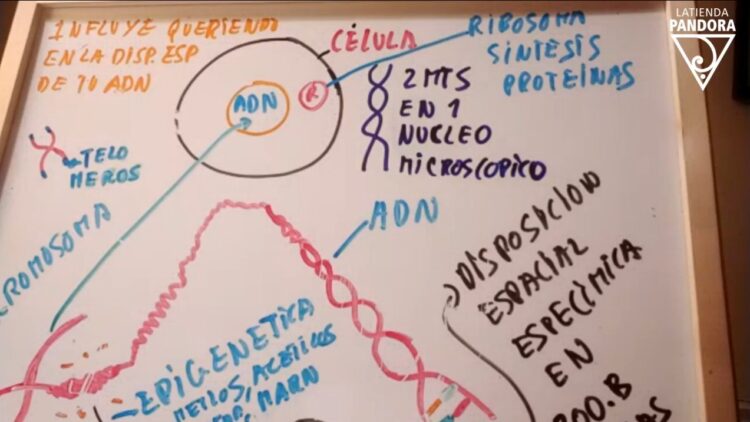 1 NFLUYE QUERIENDO
EN LA DISP. ESP
DE TU ADN
CÉLULA
RIBOSOMA
SINTESIS
PROTEINAS
LATIENDA
PANDORA
ADN
R
2 MTS
EN 1
NUCLEO
MICROSCOPICO
TELO
MEROS
CROMOSOMA
ADN
DISPOSICION
ESPACIAL
ESPECIMICA
EN
EPIGENETICA
METILOS, ACETILOS
MARN